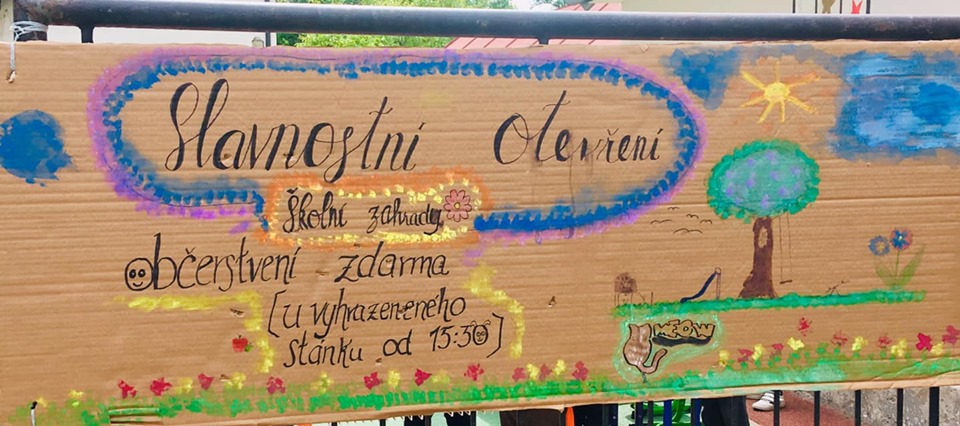 Slavnostní otevření
školní zahrady
občerstvení zdarma
(u vyhrazeneného
stánku od 15:30)
MEOW